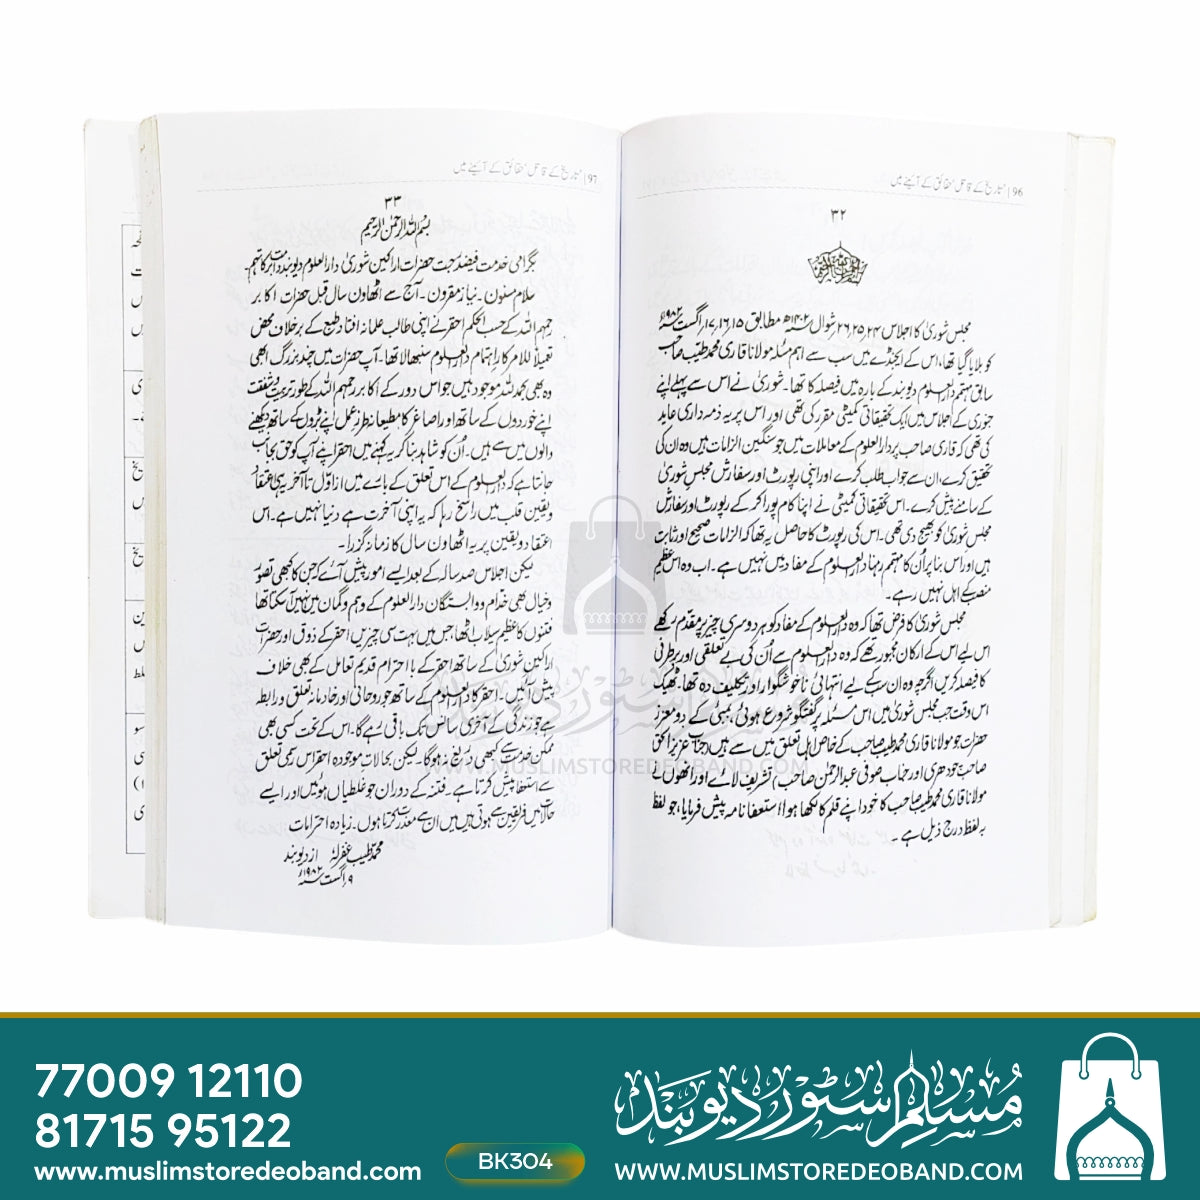 96 | تاریخ کے قاتل حقائق کے آئینے میں
۳۲
بسم اللہ الرحمٰن الرحیم
مجلس شوریٰ کا اجلاس ۲۴، ۲۵، ۲۶ شوال ۱۴۰۲ھ مطابق ۱۵، ۱۶، ۱۷ اگست ۱۹۸۲ء
کو بلایا گیا تھا، اس کے ایجنڈے میں سب سے اہم مسئلہ مولانا قاری محمد طیب صاحب
سابق مہتمم دارالعلوم دیوبند کے بارہ میں فیصلہ کا تھا۔ شوریٰ نے اس سے پہلے اپنے
جنوری کے اجلاس میں ایک تحقیقاتی کمیٹی مقرر کی تھی اور اس پر یہ ذمہ داری عاید
کی تھی کہ قاری صاحب پر دارالعلوم کے معاملات میں جو سنگین الزامات ہیں وہ ان کی
تحقیق کرے، ان سے جواب طلب کرے اور اپنی رپورٹ اور سفارش مجلس شوریٰ
کے سامنے پیش کرے۔ اس تحقیقاتی کمیٹی نے اپنا کام پورا کر کے رپورٹ اور سفارش
مجلس شوریٰ کو بھیج دی تھی۔ اس کی رپورٹ کا حاصل یہ تھا کہ الزامات صحیح اور ثابت
ہیں اور اس بنا پر اُن کا مہتمم رہنا دارالعلوم کے مفاد میں نہیں ہے۔ اب وہ اس عظیم
منصب کے اہل نہیں رہے۔
مجلس شوریٰ کا فرض تھا کہ وہ دارالعلوم کے مفاد کو ہر دوسری چیز پر مقدم رکھے
اس لیے اس کے ارکان مجبور تھے کہ وہ دارالعلوم سے اُن کی بے تعلقی اور برطرفی
کا فیصلہ کریں اگرچہ وہ ان سب کے لیے انتہائی ناخوشگوار اور تکلیف دہ تھا۔ ٹھیک
اس وقت جب مجلس شوریٰ میں اس مسئلہ پر گفتگو شروع ہوئی، بمبئی کے دو معزز
حضرات جو مولانا قاری محمد طیب صاحب کے خاص اہل تعلق میں سے ہیں (جناب عزیز الحق
صاحب چودھری اور جناب صوفی عبدالرحمٰن صاحب) تشریف لائے اور انھوں نے
مولانا قاری محمد طیب صاحب کا خود اپنے قلم کا لکھا ہوا استعفا نامہ پیش فرمایا، جو لفظ
بہ لفظ درج ذیل ہے۔
97 | تاریخ کے قاتل حقائق کے آئینے میں
۳۳
بسم اللہ الرحمٰن الرحیم
بگرامی خدمت فیضدرجت حضرات اراکین شوریٰ دارالعلوم دیوبند دامت برکاتہم۔
سلام مسنون۔ نیاز مقرون۔ آج سے اٹھاون سال قبل حضرات اکابر
رحمہم اللہ کے حسب الحکم احقر نے اپنی طالب علمانہ افتاد طبع کے برخلاف محض
تعمیلاً للامر کار اہتمام دارالعلوم سنبھالا تھا۔ آپ حضرات میں چند بزرگ ابھی
وہ بھی بحمد اللہ موجود ہیں جو اس دور کے اکابر رحمہم اللہ کے طور تربیت و شفقت
اپنے خوردوں کے ساتھ اور اصاغر کا مطیعانہ طرز عمل اپنے بڑوں کے ساتھ دیکھنے
والوں میں سے ہیں۔ اُن کو شاہد بنا کر یہ کہنے میں احقر اپنے آپ کو حق بجانب
جانتا ہے کہ دارالعلوم کے اس تعلق کے بارے میں از اول تا آخر یہی اعتقاد
و یقین قلب میں راسخ رہا کہ یہ اپنی آخرت ہے دنیا نہیں ہے۔ اس
اعتقاد و یقین پر یہ اٹھاون سال کا زمانہ گزرا۔
لیکن اجلاس صد سالہ کے بعد ایسے امور پیش آئے کہ جن کا کبھی تصور
و خیال بھی خدام و وابستگان دارالعلوم کے وہم و گمان میں نہیں آ سکتا تھا
فتنوں کا عظیم سیلاب اٹھا جس میں بہت سی چیزیں احقر کے ذوق اور حضرات
اراکین شوریٰ کے ساتھ احقر کے با احترام قدیم تعامل کے بھی خلاف
پیش آئیں۔ احقر کا دارالعلوم کے ساتھ جو روحانی اور خادمانہ تعلق و رابطہ
ہے جو زندگی کے آخری سانس تک باقی رہے گا۔ اس کے تحت کسی بھی
ممکن خدمت سے کبھی دریغ نہ ہوگا۔ لیکن بحالات موجودہ احقر اس رسمی تعلق
سے استعفا پیش کرتا ہے۔ فتنہ کے دوران جو غلطیاں ہوئیں اور ایسے
حالات میں فریقین سے ہوتی ہیں میں ان سے معذرت کرتا ہوں۔ زیادہ احترامات
محمد طیب غفرلہٗ از دیوبند
۹ اگست ۱۹۸۲ء
مسلم سٹور دیوبند
WWW.MUSLIMSTOREDEOBAND.COM
77009 12110
81715 95122
www.muslimstoredeoband.com
BK304
مسلم سٹور دیوبند
WWW.MUSLIMSTOREDEOBAND.COM